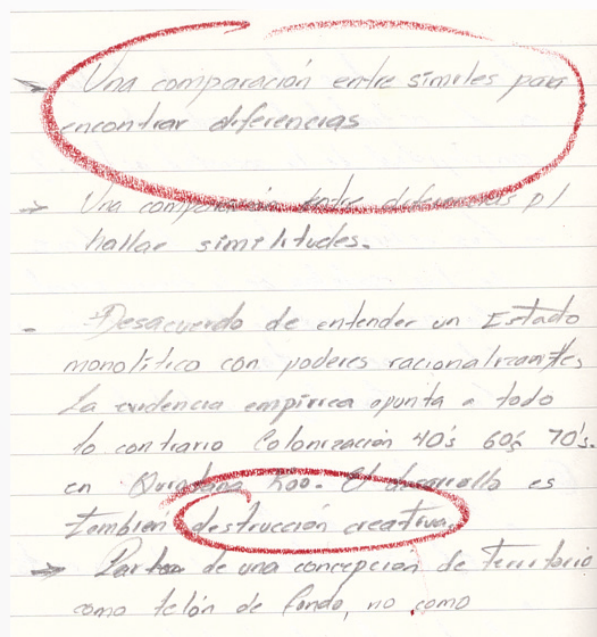 → Una comparación entre similes para
encontrar diferencias
→ Una comparación entre diferencias p/
hallar similitudes.
- Desacuerdo de entender un Estado
monolítico con poderes racionalizantes,
La evidencia empírica apunta a todo
lo contrario Colonización 40's 60's 70's.
en Quintana Roo. El desarrollo es
también destrucción creativa.
→ de una concepción de territorio
como telón de fondo, no como